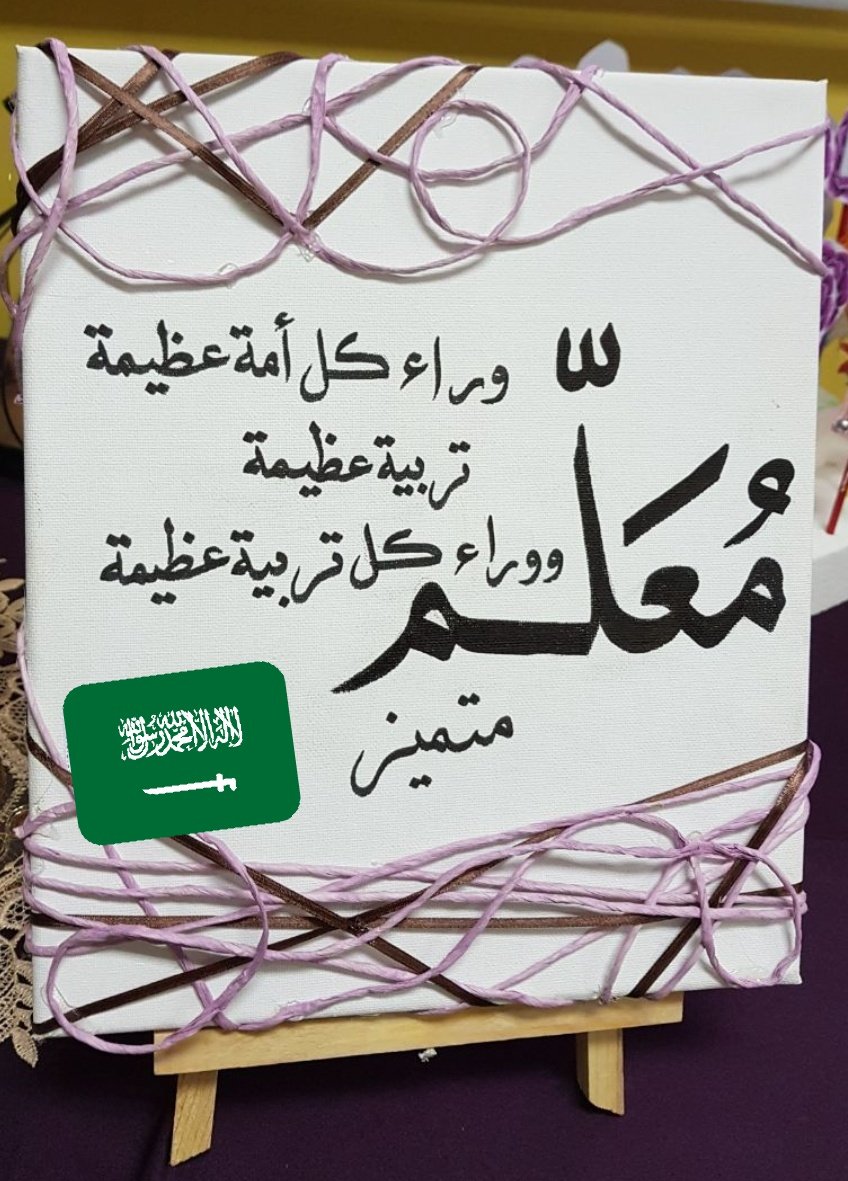 وراء كل أمة عظيمة
تربية عظيمة
ووراء كل تربية عظيمة
مُعَلّم
متميز
لا إله إلا الله محمد رسول الله